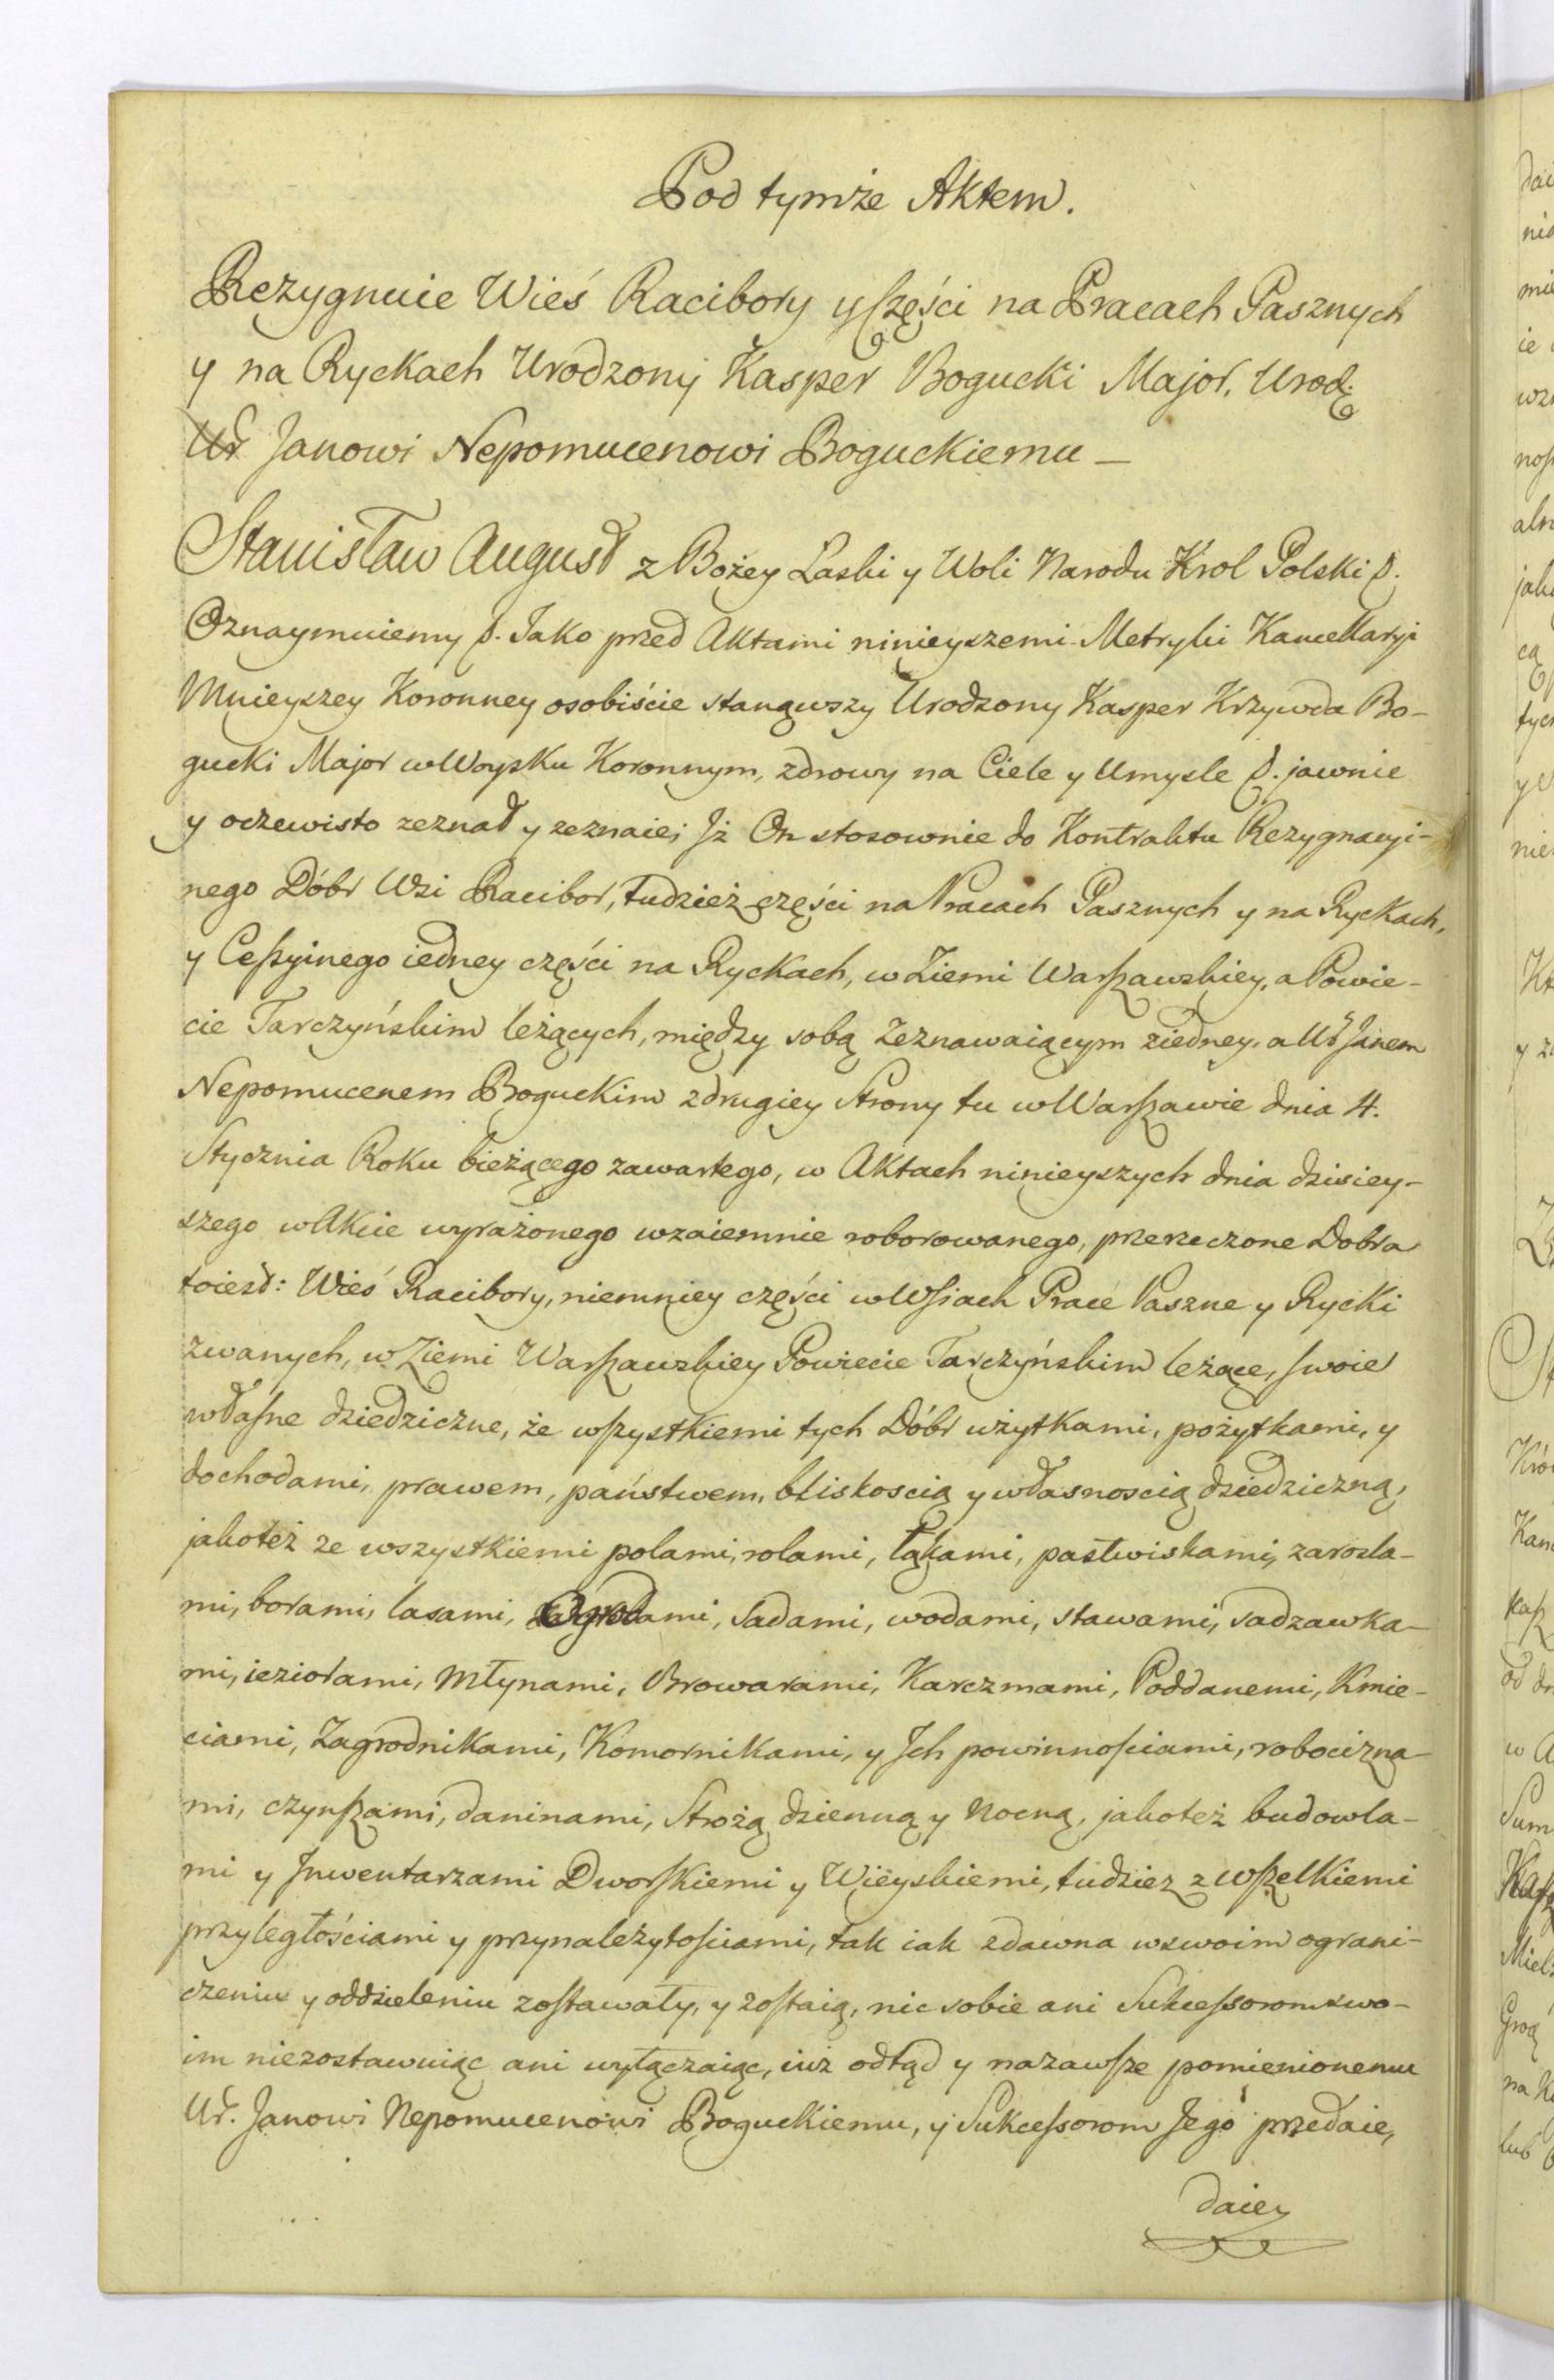 Pod tymże Aktem.
Rezygnuie Wieś Racibory y Części na Pracach Pasznych
y na Ryckach Urodzony Kasper Bogucki Major, Urodz:
Ur Janowi Nepomucenowi Boguckiemu —
Stanisław August z Bożey Łaski y Woli Narodu Krol Polski &.
Oznaymuiemy &. Jako przed Aktami ninieyszemi Metryki Kancellaryi
Mnieyszey Koronney osobiście stanąwszy Urodzony Kasper Krzywda Bo-
gucki Major w Woysku Koronnym, zdrowy na Ciele y Umysle &. jawnie
y oczewisto zeznał y zeznaie; Iż On stosownie do Kontraktu Rezygnacyi-
nego Dóbr Wsi Racibor, tudzież części na Pracach Pasznych y na Ryckach,
y Cessyinego iedney części na Ryckach, w Ziemi Warszawskiey, a Powie-
cie Tarczyńskim leżących, między sobą Zeznawaiącym ziedney, a Ur Janem
Nepomucenem Boguckim zdrugiey Strony tu w Warszawie dnia 4.
Stycznia Roku bieżącego zawartego, w Aktach ninieyszych dnia dzisiey-
szego w Akcie wyrażonego wzaiemnie roborowanego, przerzeczone Dobra
toiest: Wieś Racibory, niemniey części w Wsiach Prace Paszne y Rycki
zwanych, w Ziemi Warszawskiey Powiecie Tarczyńskim leżące, swoie
własne dziedziczne, że wszystkiemi tych Dóbr użytkami, pożytkami, y
dochodami, prawem, państwem, bliskoscią y własnoscią dziedziczną,
jakoteż ze wszystkiemi polami, rolami, łąkami, pastwiskami, zarosla-
mi, borami, lasami, Ogrodami, Sadami, wodami, stawami, sadzawka-
mi, ieziorami, Młynami, Browarami, Karczmami, Poddanemi, Kmie-
ciami, Zagrodnikami, Komornikami, y Ich powinnościami, robocizna-
mi, czynszami, daninami, Strożą dzienną y Nocną, jakoteż budowla-
mi y Inwentarzami Dworskiemi y Wieyskiemi, tudziez z wszelkiemi
przyległościami y przynależytościami, tak iak zdawna wswoim ograni-
czeniu y oddzieleniu zostawały, y zostaią, nic sobie ani Sukcessorom swo-
im niezostawuiąc ani wyłączaiąc, iuż odtąd y nazawsze pomienionemu
Ur. Janowi Nepomucenowi Boguckiemu, y Sukcessorom Jego przedaie,
daie,